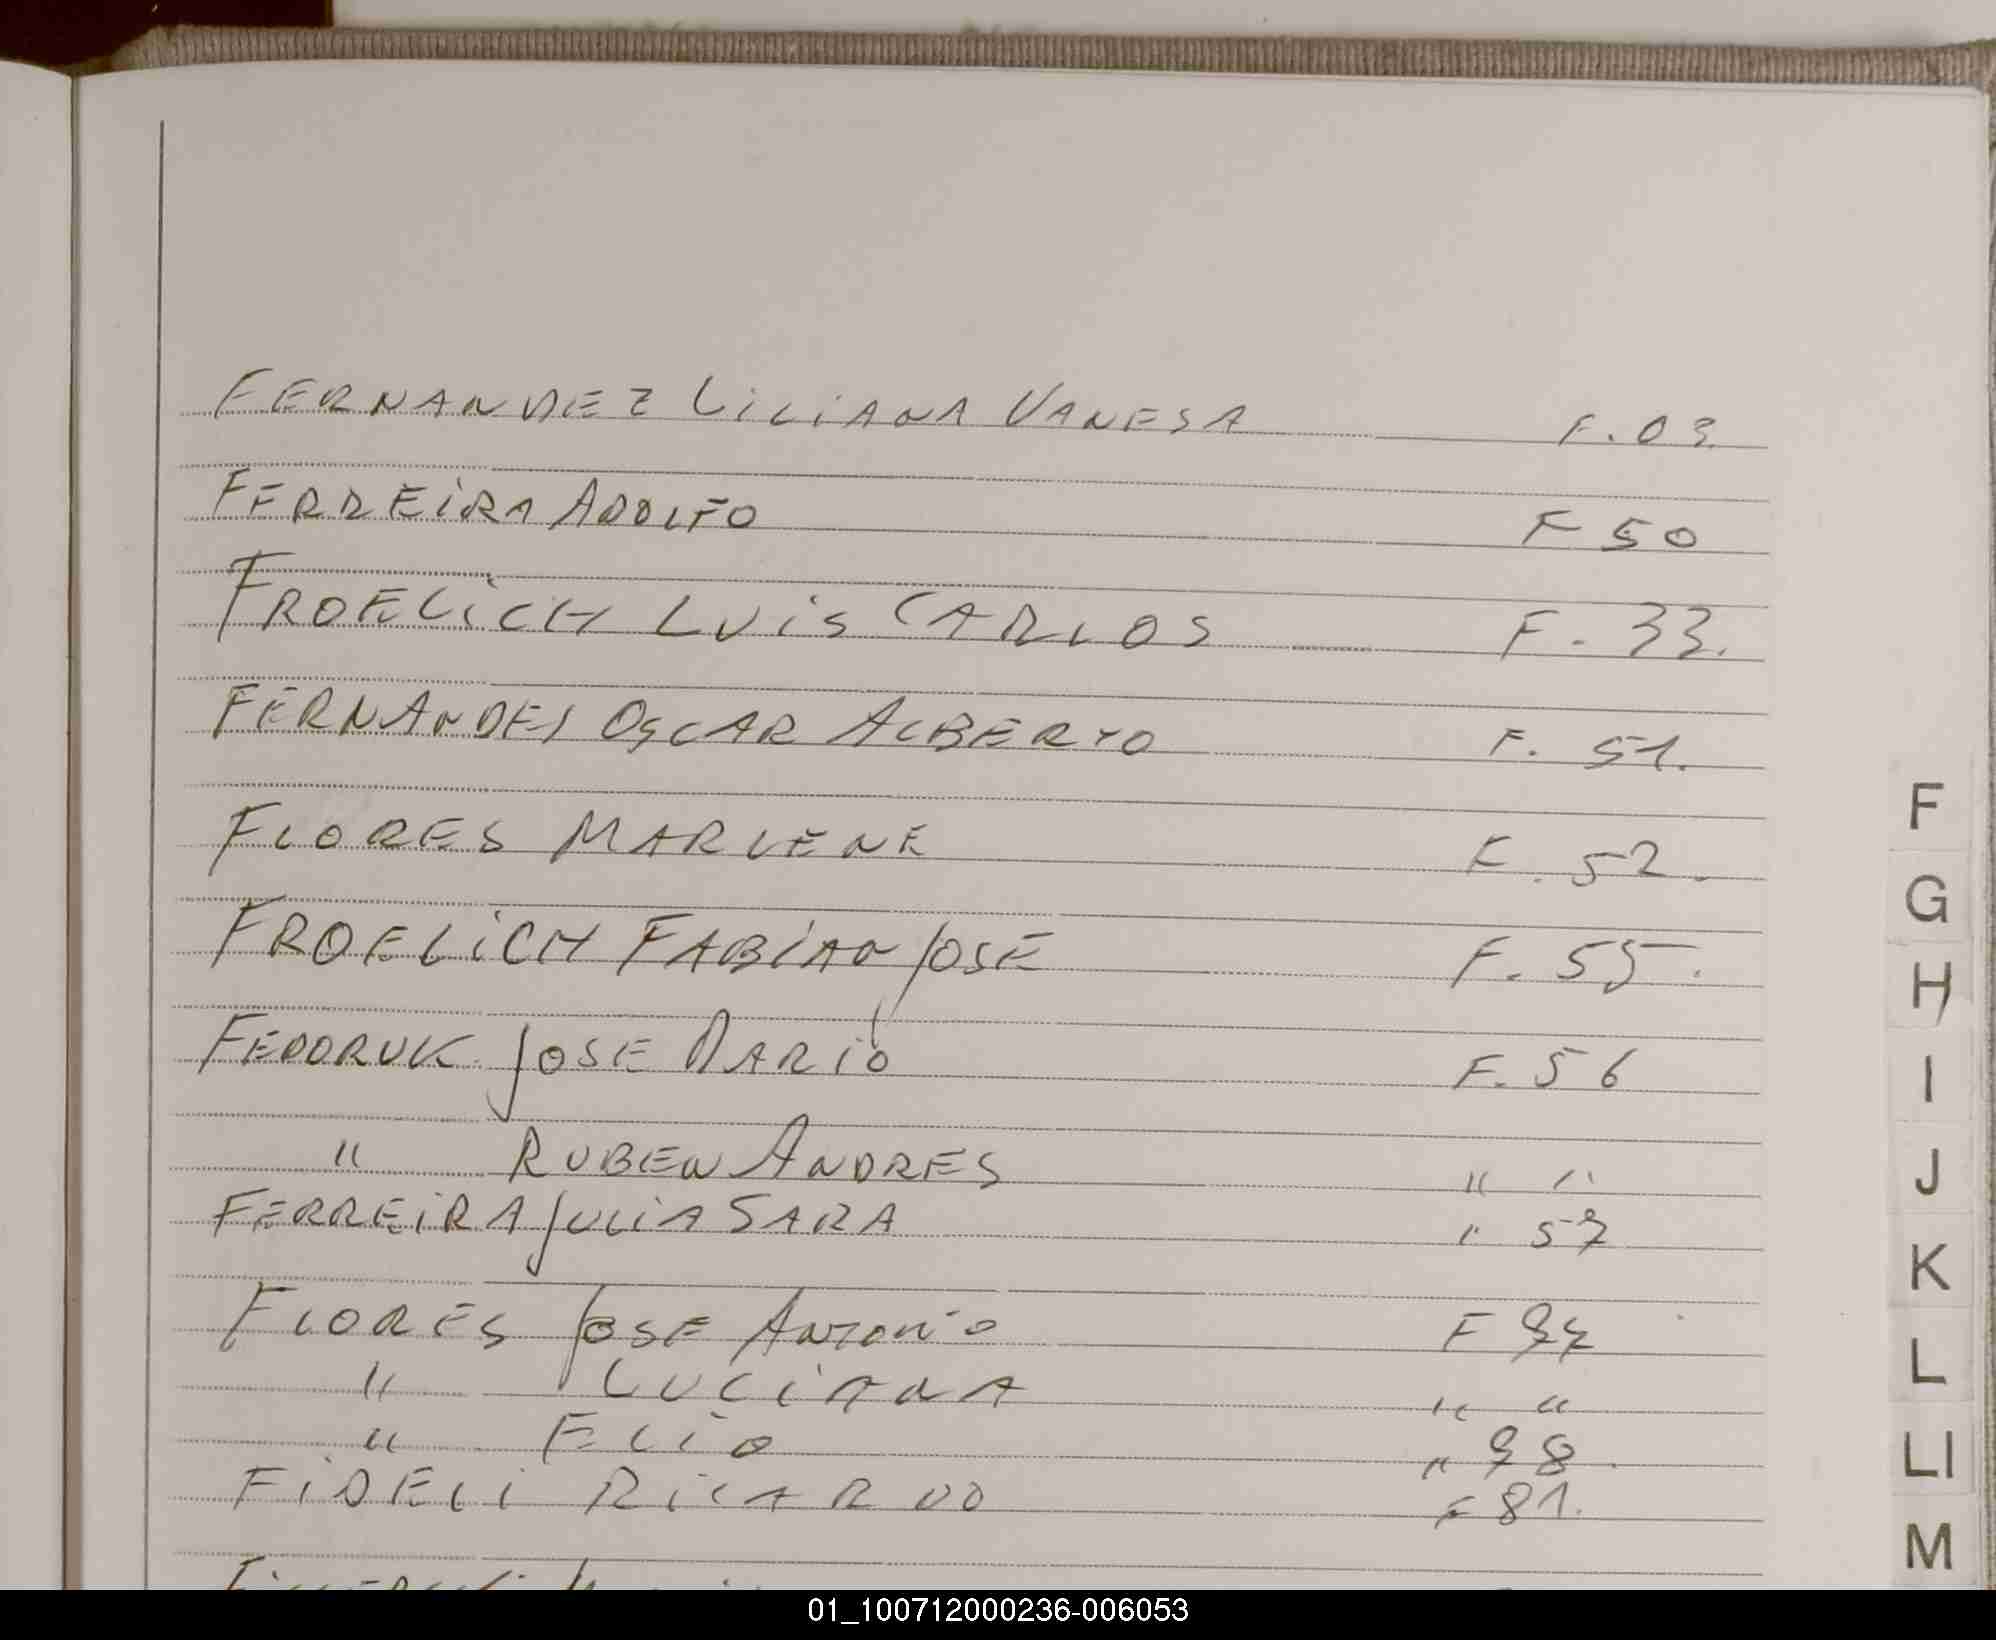 FERNANDEZ LILIANA VANESA F. 03
FERREIRA ADOLFO F 50
FROELICH LUIS CARLOS F. 33.
FERNANDES OSCAR ALBERTO F. 51.
FLORES MARLENE F. 52.
FROELICH FABIAN JOSE F. 55.
FEDORUK JOSE MARIO F. 56
" RUBEN ANDRES " "
FERREIRA JULIA SARA " 57
FLORES JOSE ANTONIO F
" LUCIANA " "
" ELIO " 98.
FIDELI RICARDO F 81.
F
G
H
I
J
K
L
Ll
M
01_100712000236-006053